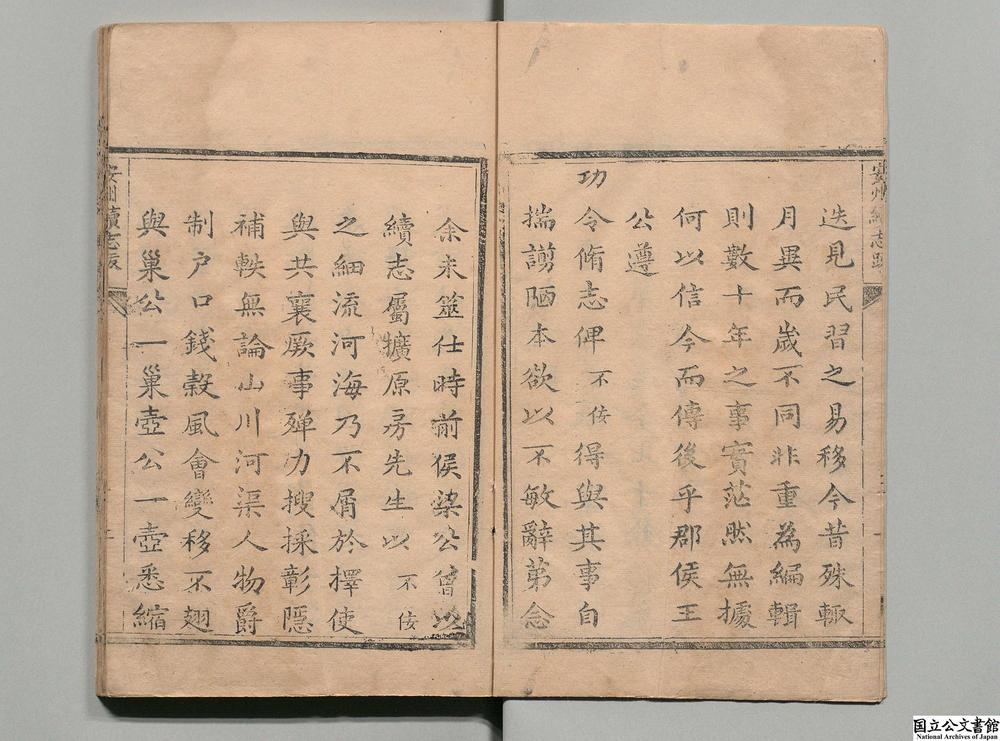 迭見民習之易移今昔殊輙
月異而歲不同非重為編輯
則數十年之事實茫然無據
何以信今而傳後乎郡侯王
公遵
功令脩志俾不佞得與其事自
揣謭陋本欲以不敏辭苐念
余未筮仕時前侯梁公曾以
續志屬擴原房先生以不佞
之細流河海乃不屑於擇使
與共襄厥事殫力搜採彰隱
補軼無論山川河渠人物爵
制户口錢穀風會變移不翅
與巢公一巢壺公一壺悉縮
安州續志
国立公文書館
National Archives of Japan